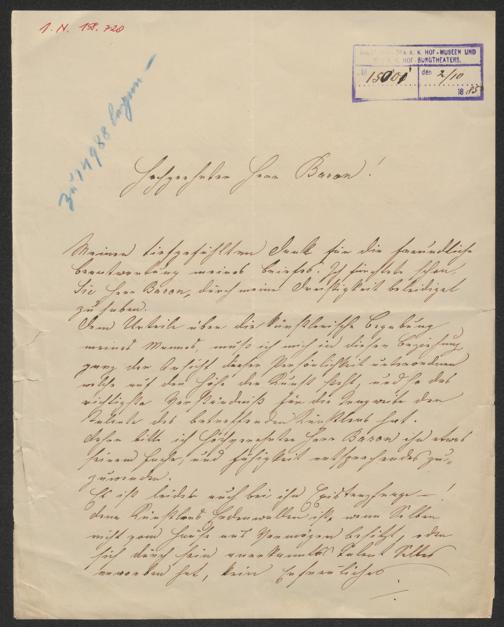 I. N. 158.720
K. K. HOF-MUSEEN UND
HOF-BURGTHEATERS.
15001 den 2/10
18 85
zu 14988
Hochgeehrter Herr Baron!
Meinen tiefgefühlten Dank für die freundliche
Beantwortung meines Briefes. Ich fürchtete schon,
Sie Herr Baron, durch meine Dreistigkeit beleidigt
zu haben.
Dem Urteile über die künstlerische Begabung
meines Mannes, muß ich mich in dieser Beziehung
ganz der Ansicht derer Persönlichkeit unterordnen
welche auf der Höhe der Kunst steht, und so das
richtigste Verständniß für die Tragweite der
Talente des betreffenden Künstlers hat.
Daher bitte ich Hochgeehrter Herr Baron ihm etwas
seinem Fache, und Fähigkeit entsprechendes zu-
zuwenden.
Es ist leider auch bei ihm Existenzfrage — !
denn Künstlers Erdenwallen ist, wenn Selber
nicht vom Hause aus Vermögen besitzt, oder
sich durch sein anerkanntes Talent Selbes
erworben hat, kein Erfreuliches